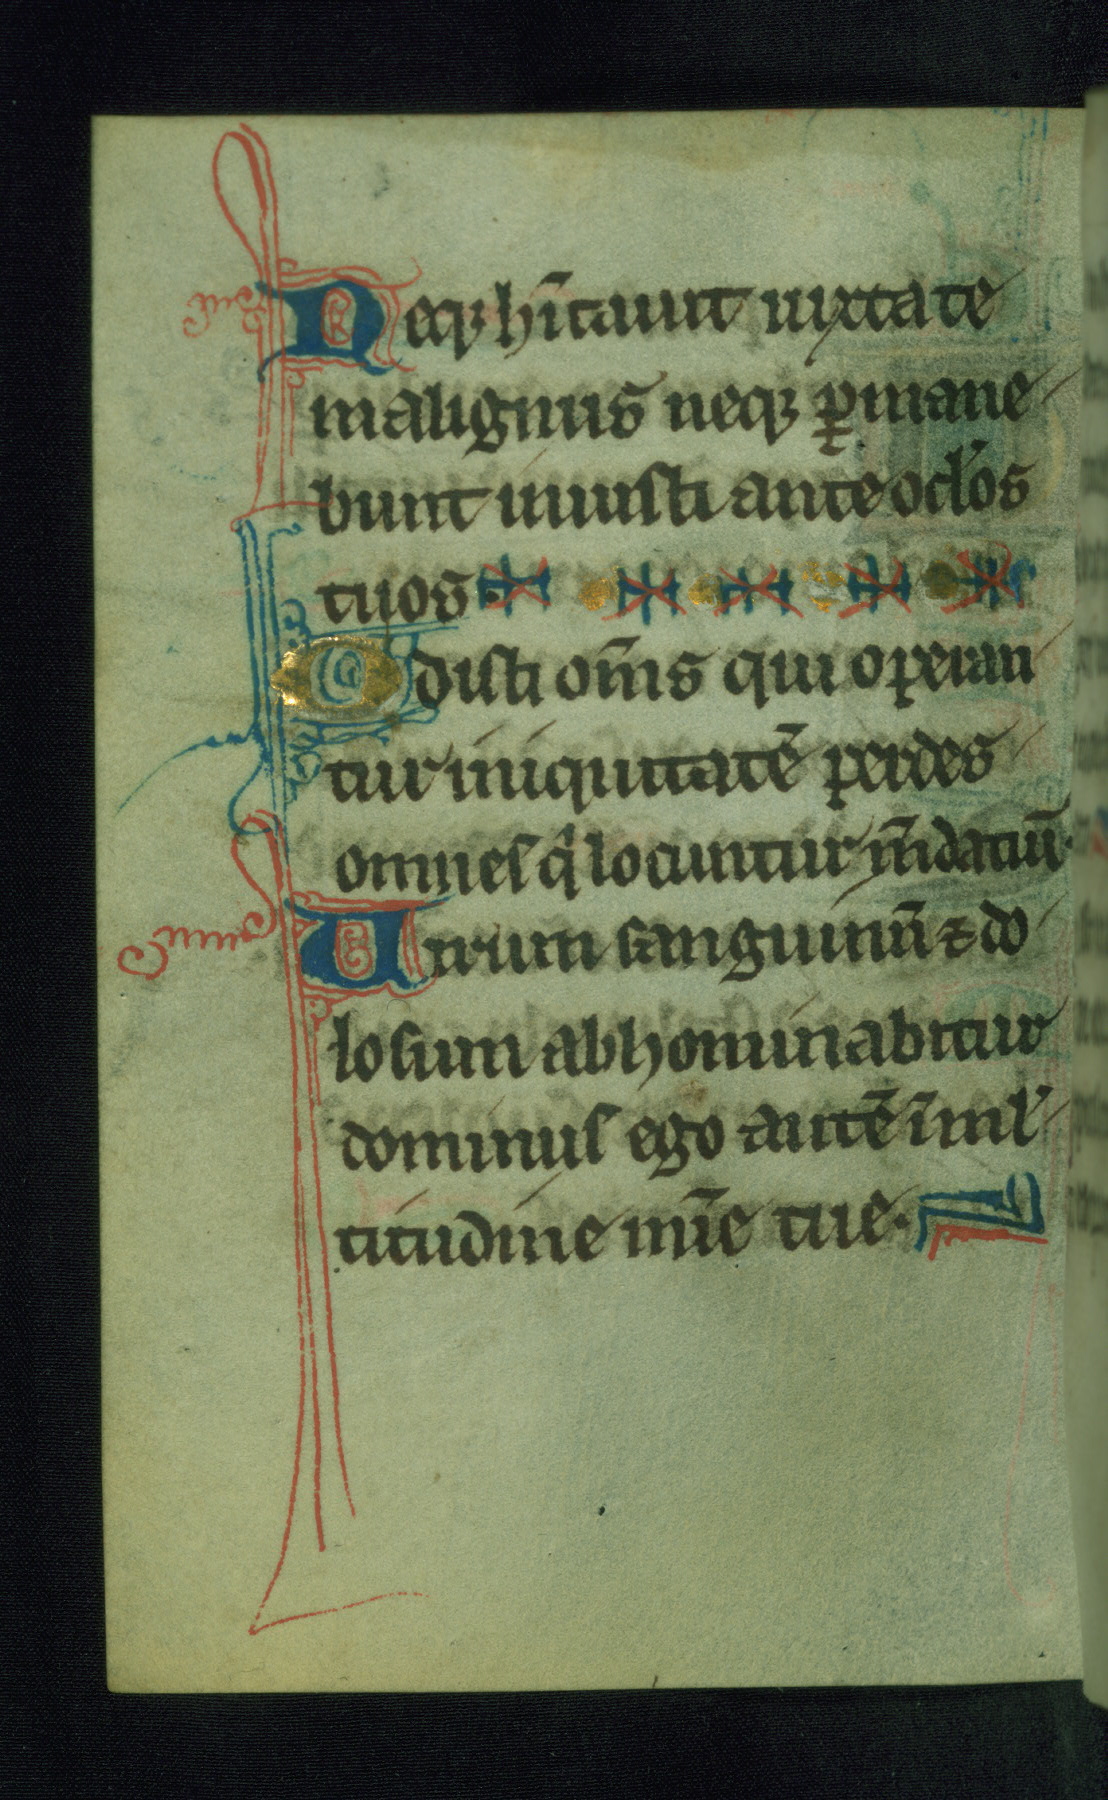 Neqꝫ hītauit iuxta te
malignus neqꝫ ꝑmane
bunt iniusti ante oclos
tuos
Odisti om̄s qui operan
tur iniquitatē perdes
omnes q̇ locuntur m̄daciū
Uirum sanguinū ⁊ do
losum abhominabitur
dominus ego autē ī ml̓
titudine mīe tue.